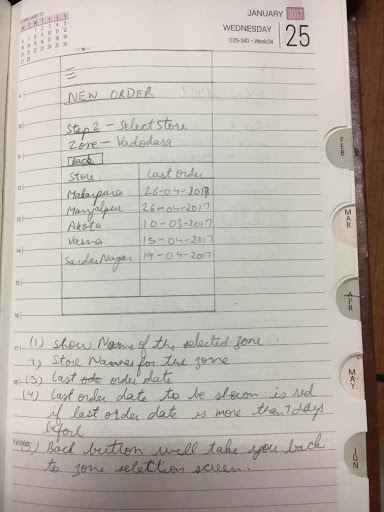 FEBRUARY17
JANUARY 2017
WEDNESDAY 25
025-340 • Week 04
NEW ORDER
Step 2 - Select Store
Zone - Vadodara
Back
Store Last order
Makarpura 26-04-2017
Manjalpur 26-04-2017
Akota 10-03-2017
Vasna 15-04-2017
Sardar Nagar 19-04-2017
(1) Show Name of the selected zone
2) Store Names for the zone
(3) Last order date
(4) Last order date to be shown is red
if last order date is more than 7 days
before
Notes
(5) Back button will take you back
to zone selection screen.
FEB
MAR
APR
MAY
JUN
9
10
11
12
13
14
15
16
17
18